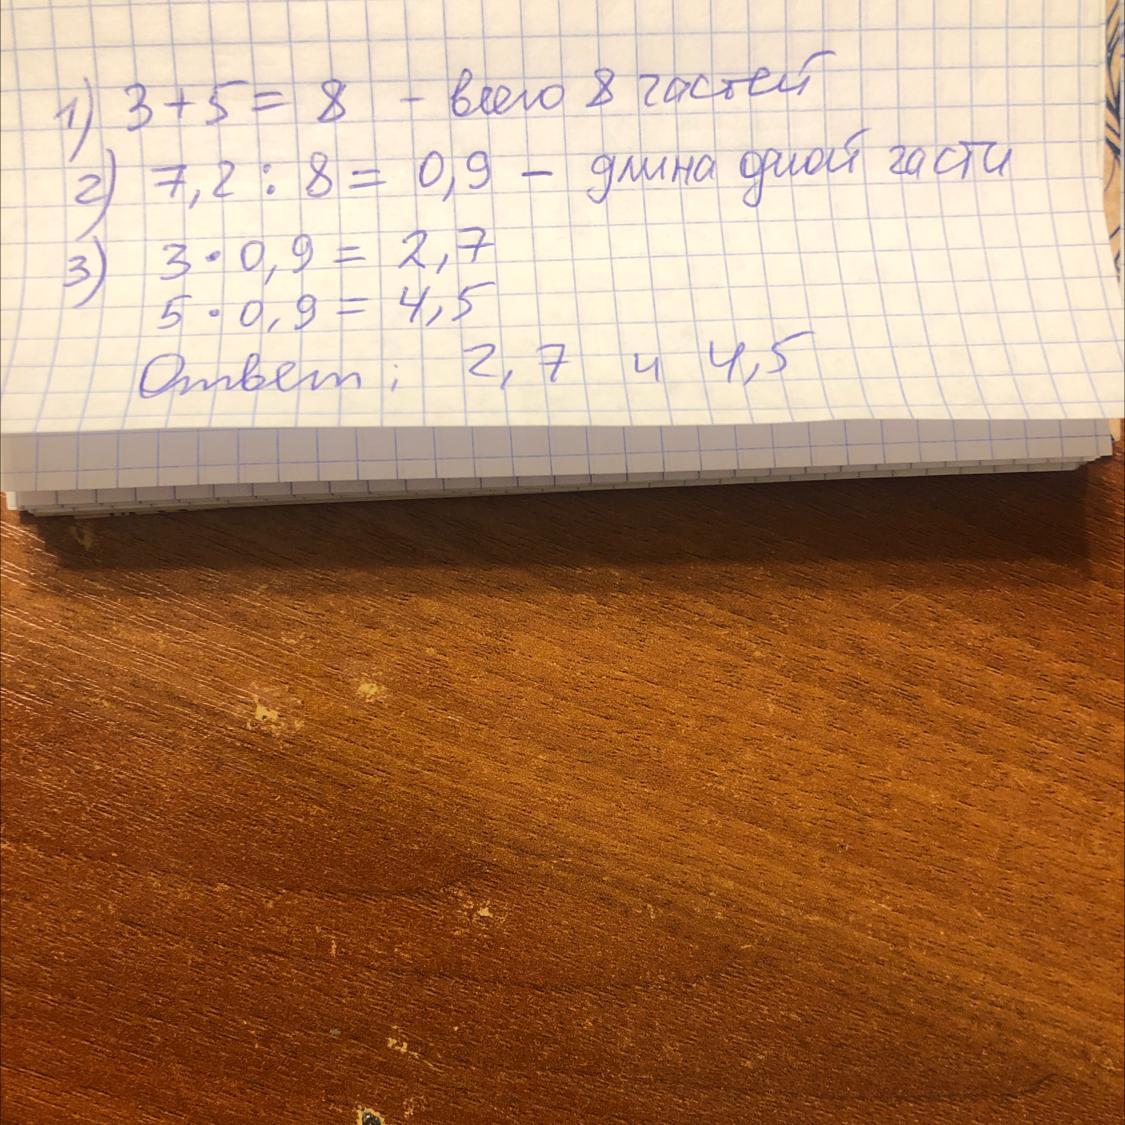 1) 3+5= 8 - всего 8 частей
2) 7,2 : 8 = 0,9 - длина одной части
3) 3·0,9 = 2,7
5·0,9 = 4,5
Ответ: 2,7 и 4,5